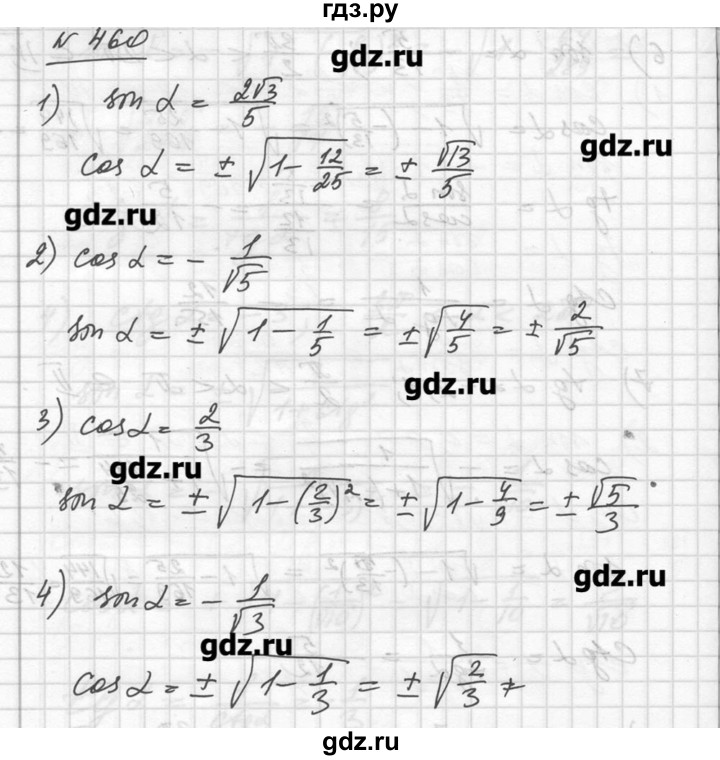 гдз.ру
N 460
gdz.ru
1) sin α = 2√3/5
gdz.ru
cos α = ± √(1 - 12/25) = ± √13/5
gdz.ru
2) cos α = - 1/√5
sin α = ± √(1 - 1/5) = ± √(4/5) = ± 2/√5
gdz.ru
3) cos α = 2/3
gdz.ru
sin α = ± √(1 - (2/3)²) = ± √(1 - 4/9) = ± √5/3
gdz.ru
4) sin α = - 1/√3
gdz.ru
cos α = ± √(1 - 1/3) = ± √(2/3)
gdz.ru